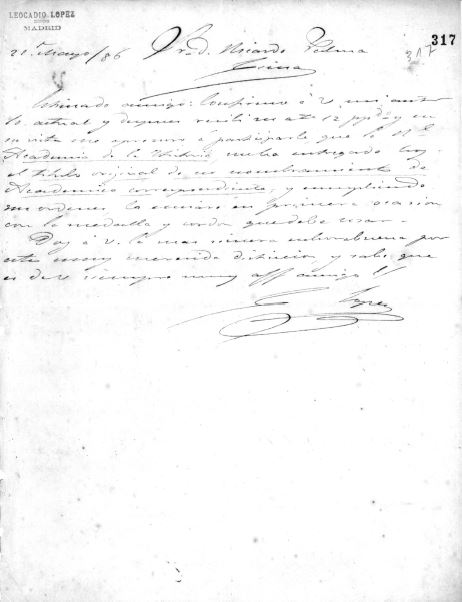 LEOCADIO LOPEZ
MADRID
317
21 Mayo/86 Sr. D. Ricardo Palma
317
Lima
Estimado amigo: Confirmo á V. mi ant.
10. actual y despues recibi su at. 12 ppdo y en
su vista me apresuro á participarle que la Rl.
Academia de la Historia me ha entregado hoy
el titulo original de su nombramiento de
Academico correspondiente, y cumpliendo
sus ordenes lo enviaré en primera ocasion
con la medalla y cordon que debe usar.
Doy á V. la mas sincera enhorabuena por
esta muy merecida distincion, y sabe que
es de V. siempre muy aff amigo
L. Lopez